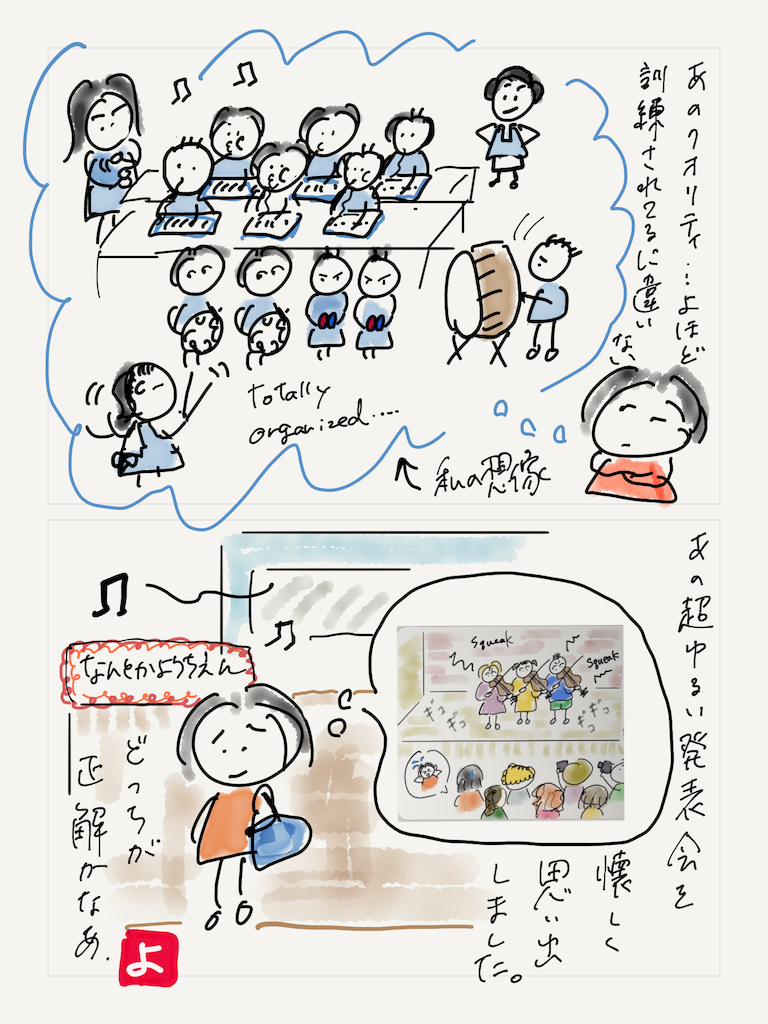 あのクオリティ…よほど
訓練されてるに違い
ない
totally
organized....
私の想像
あの超ゆるい発表会を
懐しく
思い出
しました。
Squeak
Squeak
ギコ
ギコ
ギコ
ギコ
なんとかようちえん
どっちが
正解かなあ.
よ